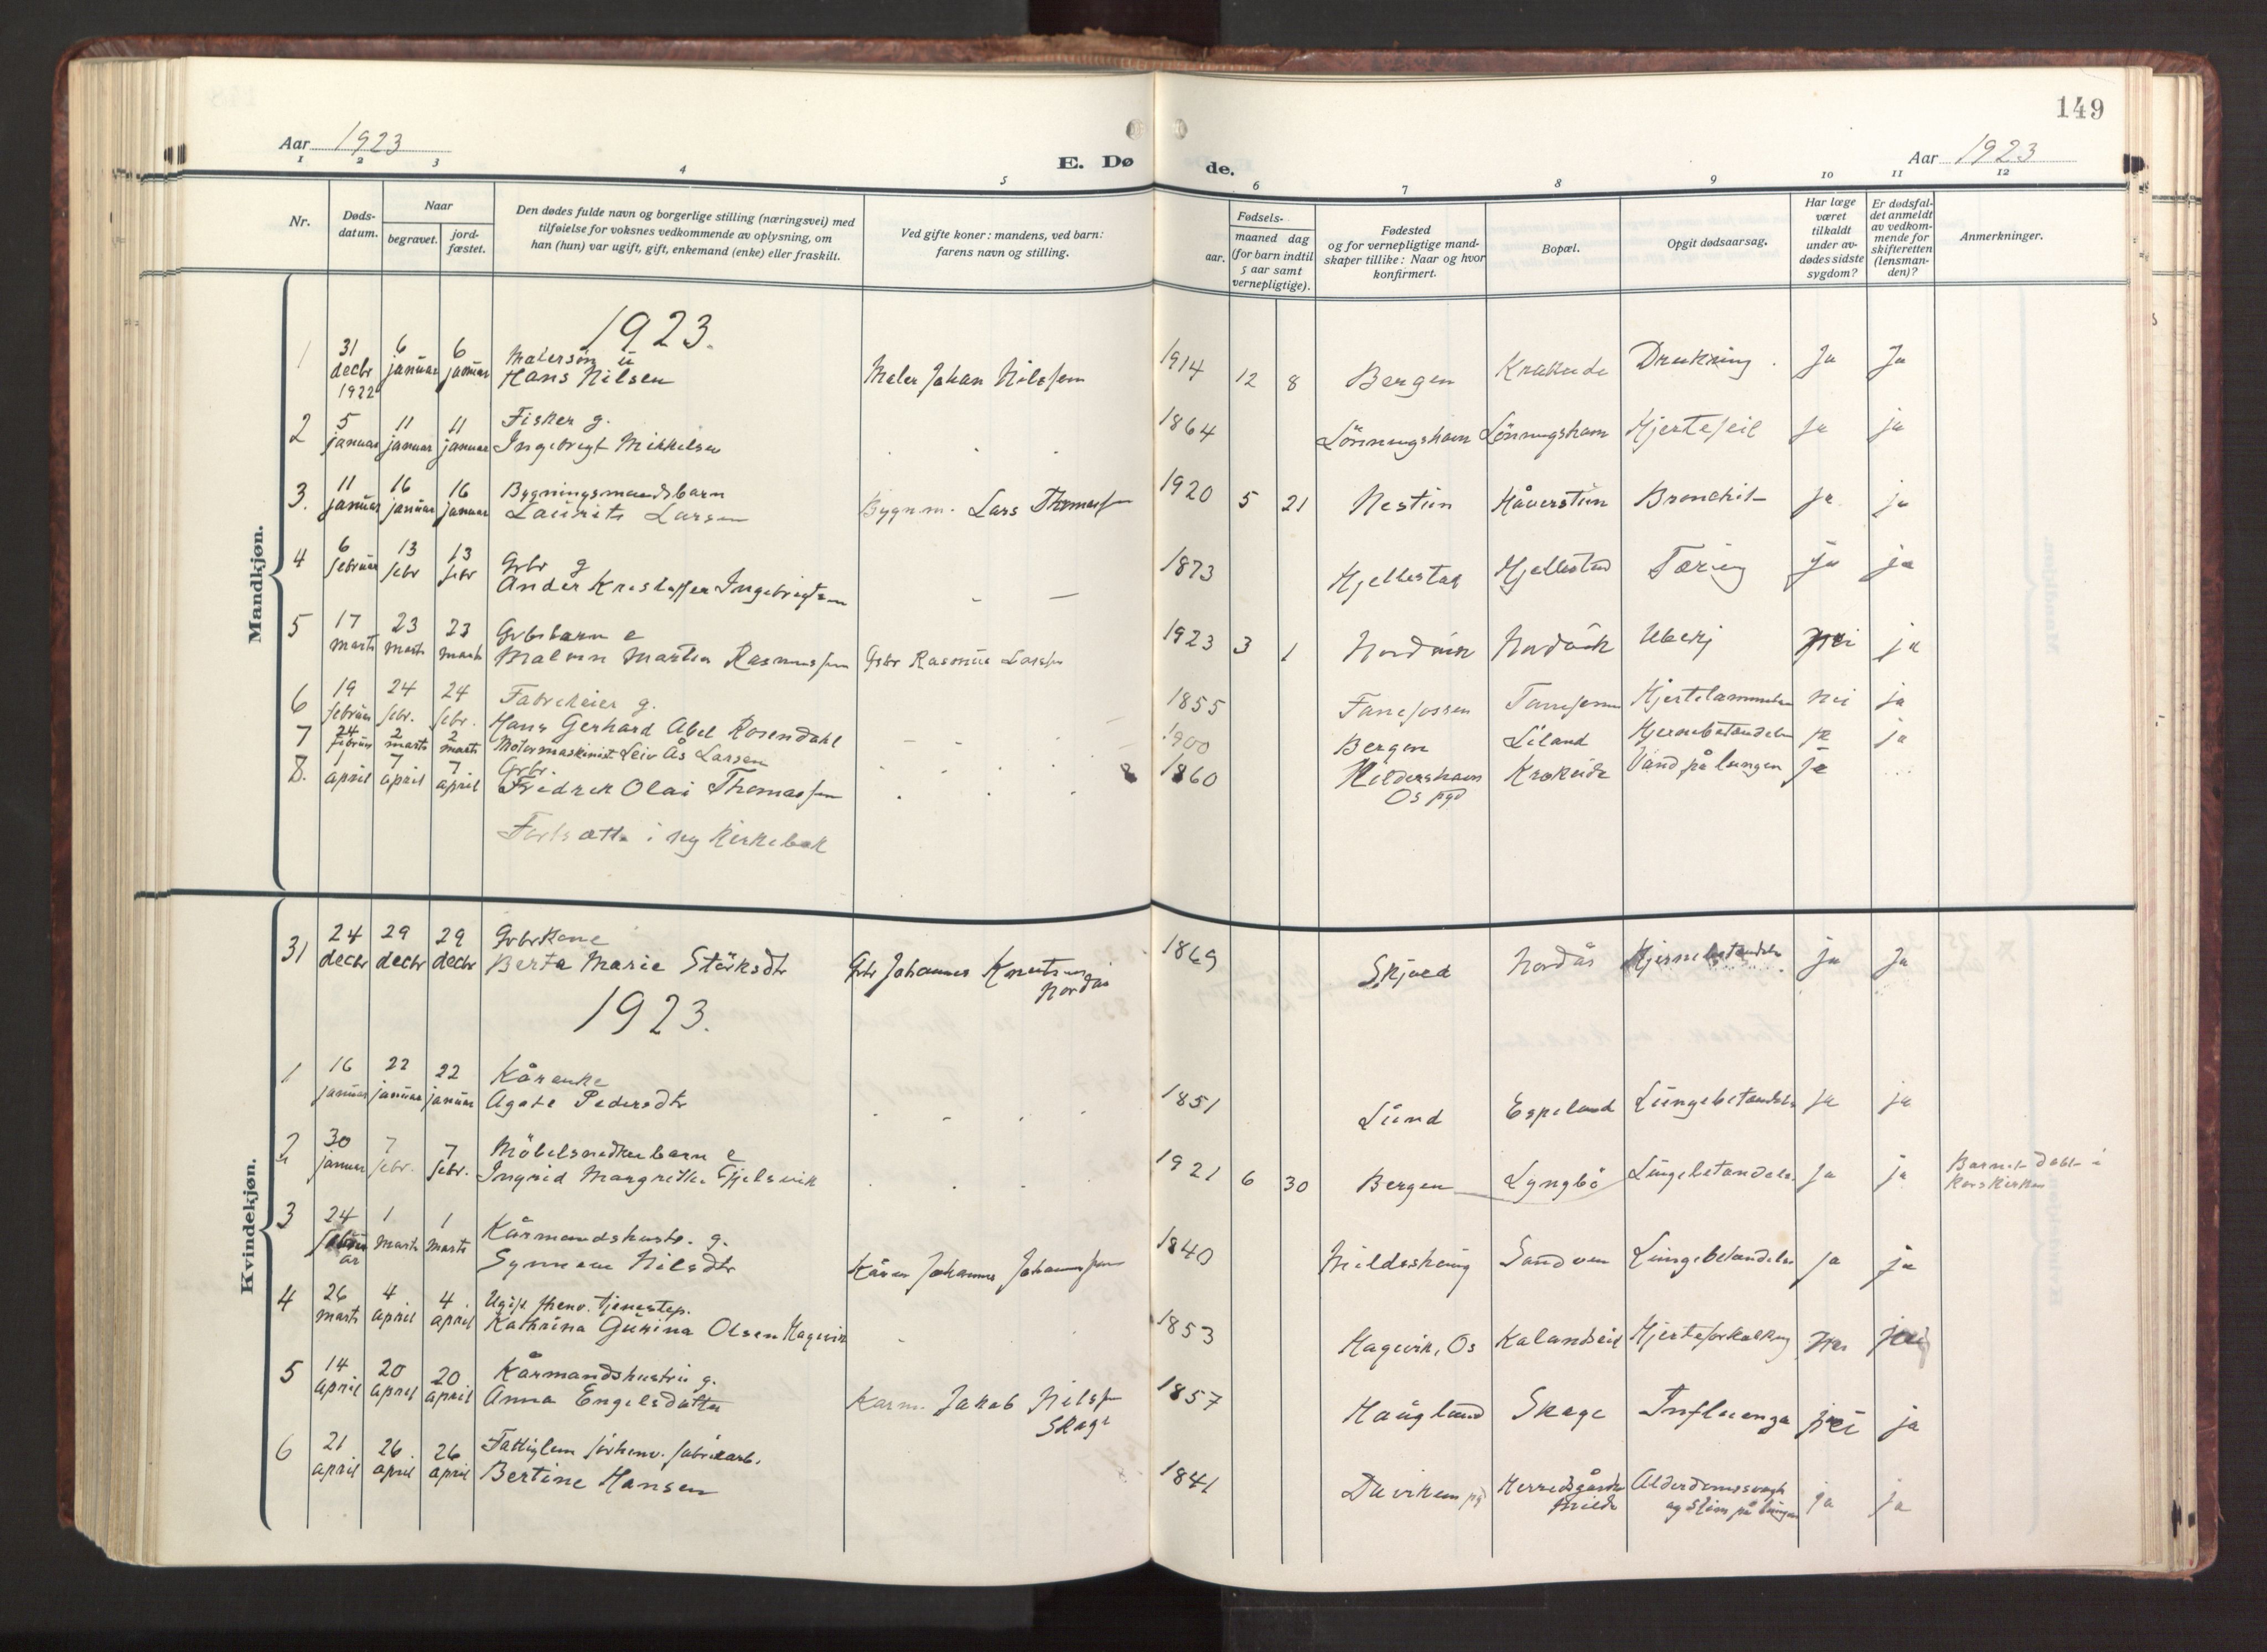 149
Aar 1923
E. Dø
de.
Aar 1923
1 2 3 4 5 6 7 8 9 10 11 12
Nr.
Døds-
datum.
Naar
begravet.
jord-
fæstet.
Den dødes fulde navn og borgerlige stilling (næringsvei) med
tilføielse for voksnes vedkommende av oplysning, om
han (hun) var ugift, gift, enkemand (enke) eller fraskilt.
Ved gifte koner: mandens, ved barn:
farens navn og stilling.
Fødsels-
aar.
maaned dag
(for barn indtil
5 aar samt
vernepligtige).
Fødested
og for vernepligtige mand-
skaper tillike: Naar og hvor
konfirmert.
Bopæl.
Opgit dødsaarsag.
Har læge
været
tilkaldt
under av-
dødes sidste
sygdom?
Er dødsfal-
det anmeldt
av vedkom-
mende for
skifteretten
(lensman-
den)?
Anmerkninger.
Mandkjøn.
1923.
1 31 6 6 Malersøn u
decbr januar januar Hans Nilsen Maler Johan Nilssen 1914 12 8 Bergen Drukning. Ja Ja
1922
2 5 11 11 Fisker g.
januar januar januar Ingebrigt Mikkelsen 1864 Lönningshavn Lönningshavn Hjertefeil Ja ja
3. 11 16 16 Bygningsmandsbarn
januar januar januar Laurits Larsen Bygnm. Lars Thomassen 1920 5 21 Nestün Håverstün Bronchit ja ja
4 6 13 13 Grbr g
februar febr febr Ander Kristoffer Ingebrigtsen 1873 Hjellestad Hjellestad Tæring ja ja
5 17 23 23 Grbrbarn e
marts marts marts Malvin Martin Rasmussen Grbr Rasmus Larsen 1923 3 1 Nordvik Nordvik nei ja
6 19 24 24 Fabrikeier g.
februar febr. febr. Hans Gerhard Abel Rosendahl 1855 Fanefossen Hjertelammelse Nei ja
7 24 2 2
februar marts marts Motormaskinist Leiv Ås Larsen 1900 Bergen Liland Hjernebetændelse ja ja
8. 7 7 7 Grbr.
april april april Fredrik Olai Thomassen 1860 Kildershavn Krokeide Vand på lungen ja
Os pgd
Fortsatt i ny Kirkebok
Kvindekjøn.
31 24 29 29 Grbrkone
decbr decbr decbr Berta Marie Störksdtr Grbr Johannes Knutsen 1869 Skjold Nordås Hjernebetændelse ja Ja
Nordås
1923.
1 16 22 22 Kårenke
januar januar januar Agate Pedersdtr 1851 Lünd Espeland Lüngebetændelse ja ja
2 30 7 7 Möbelsnedkerbarn e
januar febr. febr. Ingrid Margrethe Gjelsvik 1921 6 30 Bergen Lyngbö Lungebetændelse ja ja Barnet döbt i
Korskirken
3 24 1 1 Kårmandshustr. g.
februar marts marts Synneve Nilsdtr Kårm Johannes Johannessen 1840 Mildeshaug Sandven Lungebetændelse ja ja
4 26 4 4. Ugift fhenv. tjenestep.
marts april april Kathrina Gurina Olsen Hagevik 1853 Hagevik, Os Kalandseid Hjerteforkalkning
5 14 20 20 Kårmandshustru g.
april april april Anna Engelsdatter Karm. Jakob Nilssen 1857 Haugland Skage Influenza nei ja
Skage
6 21 26 26 Fattiglem forhenv. fabrikarb.
april april april Bertine Hansen 1841 Davikem pgd Herredsgården Alderdomssvagh ja ja
Milde og Slim på lungen